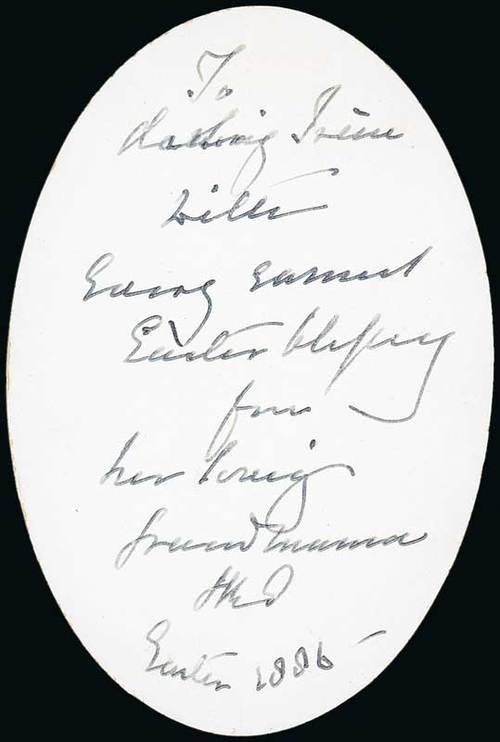 To
darling Irène
with
Every earnest
Easter blessing
from
her loving
Grandmama
Easter 1886